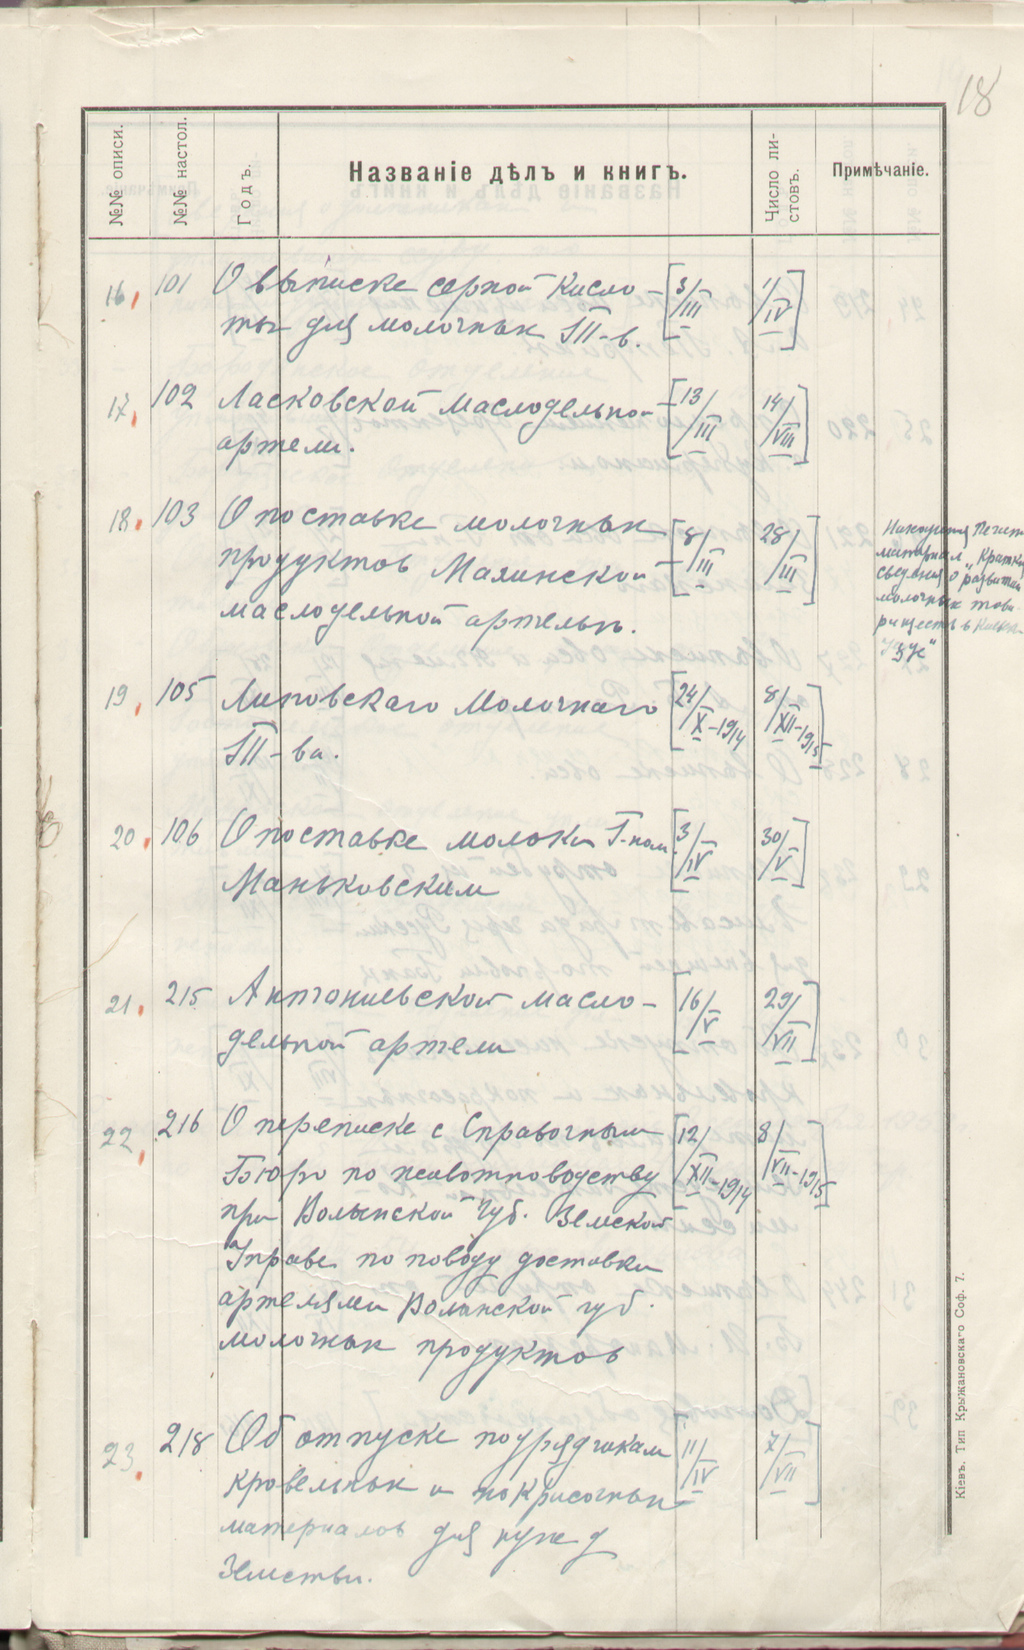 18
№№ описи.
№№ настол.
Годъ.
Названіе дѣлъ и книгъ.
Число ли-
стовъ.
Примѣчаніе.
16, 101 О выписке серной кисло- [3/III 1/IV]
ты для молочных Т-в.
17, 102 Ласковской маслодельной [13/III 14/VIII]
артели.
18, 103 О поставке молочных [8/III 28/III]
продуктов Малинской
маслодельной артелью.
Находится печат
материал „Кратки
сведения о развитии
молочных това
риществ в Киевск
губ"
19, 105 Липовскаго Молочнаго [24/X-1914 8/XII-1915]
Т-ва.
20, 106 О поставке молока Г-ном [3/IV 30/V]
Маньковским
21, 215 Антонильской масло- [16/V 29/VII]
дельной артели
22, 216 О переписке с Справочным [12/XII-1914 8/VII-1915]
Бюро по животноводству
при Волынской губ. Земской
Управе по поводу доставки
артелями Волынской губ.
молочных продуктов
23, 218 Об отпуске подрядчикам [11/IV 7/VII]
кровельных и покрасочных
материалов для нужд
Земства.
Кіевъ. Тип Крыжановскаго Соф. 7.